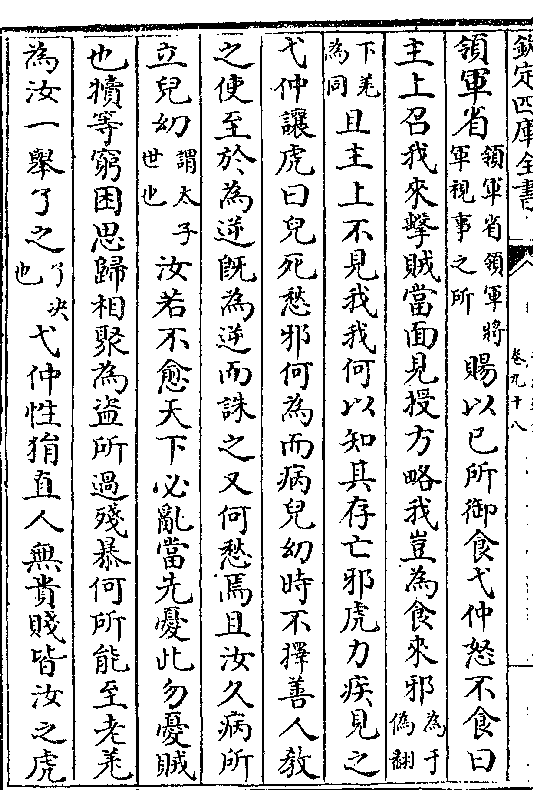 欽定四庫全書
卷九十八
領軍省領軍省領軍將軍視事之所賜以已所御食弋仲怒不食曰
主上召我來擊賊當面見授方略我豈為食來邪為于偽翻
下羌為同且主上不見我我何以知其存亡邪虎力疾見之
弋仲讓虎曰兒死愁邪何為而病兒幼時不擇善人教
之使至於為逆既為逆而誅之又何愁焉且汝久病所
立兒幼謂太子世也汝若不愈天下必亂當先憂此勿憂賊
也犢等窮困思歸相聚為盜所過殘暴何所能至老羌
為汝一舉了之了决也弋仲性狷直人無貴賤皆汝之虎